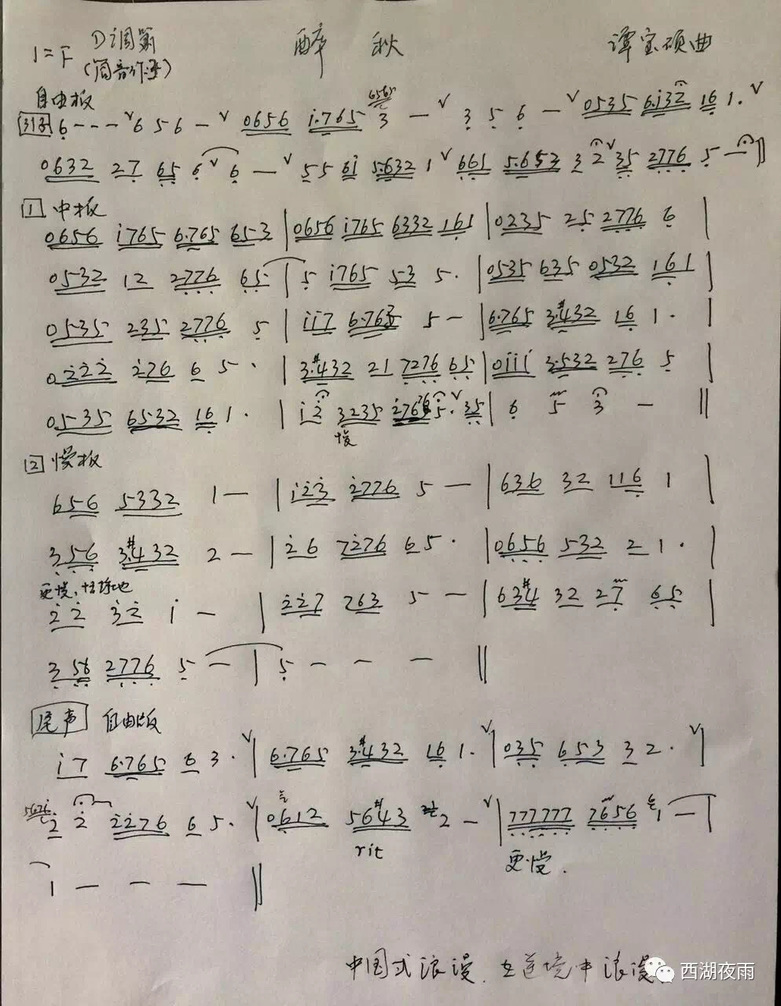 1=F ①调箫 醉秋 谭宝硕曲
(筒音作
自由板
引子 6 - - - ∨ 6 5 6 - ∨ 0656 i.765 3 - ∨ 3 5 6 - ∨ 0535 6.i32 16 1. ∨
0632 27 65 6 ∨ 6 - ∨ 55 6i 5.632 1 ∨ 661 5.653 3 2 ∨ 35 2776 5 - ‖
1 中板
0656 i765 6.765 653 | 0656 i765 6332 161 | 0235 25 2776 6 |
0532 12 2776 65 | 5 i765 53 5. | 0535 635 0532 161 |
0535 235 2776 5 | ii7 6.763 5 - | 6.765 3.#432 16 1. |
0222 276 6 5. | 3.#432 21 7276 65 | 0iii 3.532 276 5 |
0535 6532 16 1. | i2 3235 276 5. ∨ 35 | 6 5 3 - ‖
慢
2 慢板
656 5332 1 - | i23 2776 5 - | 636 32 116 1 |
356 3.#432 2 - | 26 7276 65. | 0656 532 2 1. |
更慢,
22 32 i - | 227 763 5 - | 63#4 32 27 65 |
3 56 2776 5 - | 5 - - - ‖
尾声 自由版
i7 6.765 6 3. ∨ | 6.765 3.432 16 1. ∨ | 035 653 3 2. ∨ |
2 2 2276 6 5. ∨ | 0612 56#43 2 - ∨ | 777777 7656 1 - |
rit 更慢.
1 - - - ‖
中国式浪漫 在逆境中浪漫
西湖夜雨